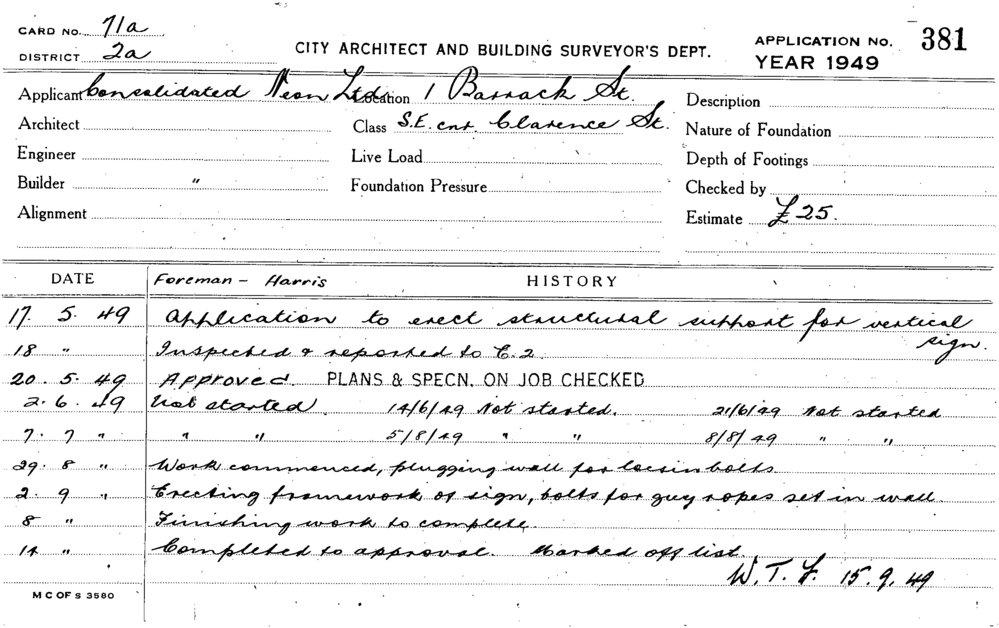 CARD NO. 71a
DISTRICT 2a
CITY ARCHITECT AND BUILDING SURVEYOR'S DEPT.
APPLICATION No. 381
YEAR 1949
Applicant Consolidated Neon Ltd. Location 1 Barrack St. Description
Architect Class S.E. cnr. Clarence St. Nature of Foundation
Engineer Live Load Depth of Footings
Builder " Foundation Pressure Checked by
Alignment Estimate £25.
DATE Foreman - Harris HISTORY
17. 5. 49 Application to erect structural support for vertical
sign.
18 " Inspected & reported to E.2.
20. 5. 49 Approved. PLANS & SPECN. ON JOB CHECKED
2. 6. 49 Not started. 14/6/49 Not started. 21/6/49 Not started
7. 7 " " " 5/8/49 " " 8/8/49 " "
29. 8 " Work commenced, plugging wall for bolts
2. 9 " Erecting framework of sign, bolts for guy ropes set in wall.
8 " Finishing work to complete.
14 " Completed to approval. Marked off list.
W. T. F. 15. 9. 49
M C OF S 3580